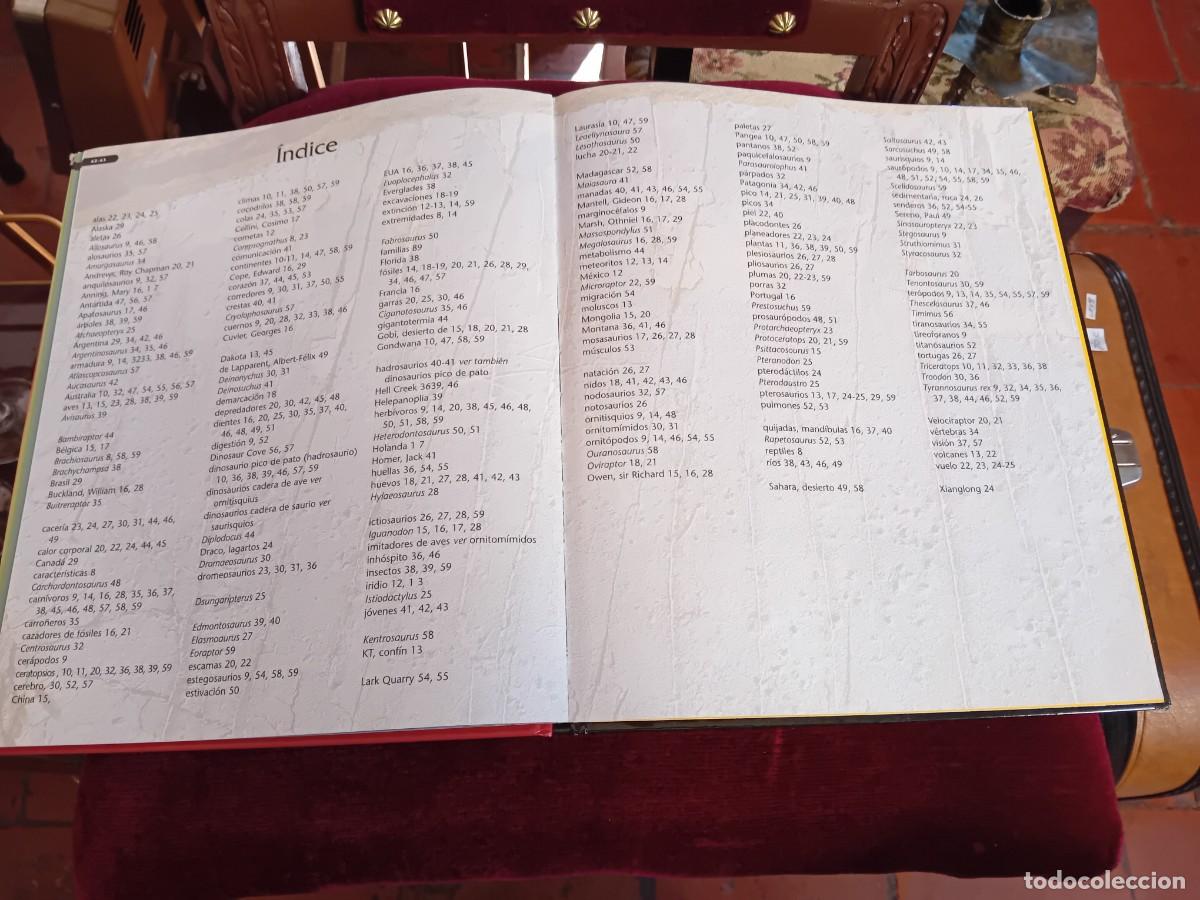 62-63
Índice
alas 22, 23, 24, 25
Alaska 29
aletas 26
Allosaurus 9, 46, 58
alosaurios 35, 57
Amargosaurus 34
Andrews, Roy Chapman 20, 21
anquilosaurios 9, 32, 57
Anning, Mary 16, 1 7
Antártida 47, 56, 57
Apatosaurus 17, 46
árboles 38, 39, 59
Archaeopteryx 25
Argentina 29, 34, 42, 46
Argentinosaurus 34, 35, 46
armadura 9, 14, 3233, 38, 46, 59
Atlascopcosaurus 57
Aucasaurus 42
Australia 10, 32, 47, 54, 55, 56, 57
aves 13, 15, 23, 28, 38, 39, 59
Avisaurus 39
Bambiraptor 44
Bélgica 15, 17
Brachiosaurus 8, 58, 59
Brachychampsa 38
Brasil 29
Buckland, William 16, 28
Buitreraptor 35
cacería 23, 24, 27, 30, 31, 44, 46,
49
calor corporal 20, 22, 24, 44, 45
Canadá 29
características 8
Carchardontosaurus 48
carnívoros 9, 14, 16, 28, 35, 36, 37,
38, 45, 46, 48, 57, 58, 59
carroñeros 35
cazadores de fósiles 16, 21
Centrosaurus 32
cerápodos 9
ceratopsios, 10, 11, 20, 32, 36, 38, 39, 59
cerebro, 30, 52, 57
China 15,
climas 10, 11, 38, 50, 57, 59
cocodrilos 38, 58, 59
colas 24, 35, 53, 57
Collini, Cosimo 17
cometas 12
Compsognathus 8, 23
comunicación 41
continentes 10-11, 14, 47, 58, 59
Cope, Edward 16, 29
corazón 37, 44, 45, 53
corredores 9, 30, 31, 37, 50, 55
crestas 40, 41
Cryolophosaurus 57
cuernos 9, 20, 28, 32, 33, 38, 46
Cuvier, Georges 16
Dakota 13, 45
de Lapparent, Albert-Félix 49
Deinonychus 30, 31
Deinosuchus 41
demarcación 18
depredadores 20, 30, 42, 45, 48
dientes 16, 20, 25, 30, 35, 37, 40,
46, 48, 49, 51
digestión 9, 52
Dinosaur Cove 56, 57
dinosaurio pico de pato (hadrosaurio)
10, 36, 38, 39, 46, 57, 59
dinosaurios cadera de ave ver
ornitisquius
dinosaurios cadera de saurio ver
saurisquios
Diplodocus 44
Draco, lagartos 24
Dromaeosaurus 30
dromeosaurios 23, 30, 31, 36
Dsungaripterus 25
Edmontosaurus 39, 40
Elasmosaurus 27
Eoraptor 59
escamas 20, 22
estegosaurios 9, 54, 58, 59
estivación 50
EUA 16, 36, 37, 38, 45
Euoplocephalus 32
Everglades 38
excavaciones 18-19
extinción 12-13, 14, 59
extremidades 8, 14
Fabrosaurus 50
familias 89
Florida 38
fósiles 14, 18-19, 20, 21, 26, 28, 29,
34, 46, 47, 57
Francia 16
garras 20, 25, 30, 46
Giganotosaurus 35, 46
gigantotermia 44
Gobi, desierto de 15, 18, 20, 21, 28
Gondwana 10, 47, 58, 59
hadrosaurios 40-41 ver también
dinosaurios pico de pato
Hell Creek 3639, 46
Helepanoplia 39
herbívoros 9, 14, 20, 38, 45, 46, 48,
50, 51, 58, 59
Heterodontosaurus 50, 51
Holanda 1 7
Homer, Jack 41
huellas 36, 54, 55
huevos 18, 21, 27, 28, 41, 42, 43
Hylaeosaurus 28
ictiosaurios 26, 27, 28, 59
Iguanodon 15, 16, 17, 28
imitadores de aves ver ornitomímidos
inhóspito 36, 46
insectos 38, 39, 59
iridio 12, 1 3
Istiodactylus 25
jóvenes 41, 42, 43
Kentrosaurus 58
KT, confín 13
Lark Quarry 54, 55
Laurasia 10, 47, 59
Leaellynasaura 57
Lesothosaurus 50
lucha 20-21, 22
Madagascar 52, 58
Maiasaura 41
manadas 40, 41, 43, 46, 54, 55
Mantell, Gideon 16, 17, 28
marginocéfalos 9
Marsh, Othniel 16, 17, 29
Massospondylus 51
Megalosaurus 16, 28, 59
metabolismo 44
meteoritos 12, 13, 14
México 12
Microraptor 22, 59
migración 54
moluscos 13
Mongolia 15, 20
Montana 36, 41, 46
mosasaurios 17, 26, 27, 28
músculos 53
natación 26, 27
nidos 18, 41, 42, 43, 46
nodosaurios 32, 57
notosaurios 26
ornitisquios 9, 14, 48
ornitomímidos 30, 31
ornitópodos 9, 14, 46, 54, 55
Ouranosaurus 58
Oviraptor 18, 21
Owen, sir Richard 15, 16, 28
paletas 27
Pangea 10, 47, 50, 58, 59
pantanos 38, 52
paquicefalosaurios 9
Parasaurolophus 41
párpados 32
Patagonia 34, 42, 46
pico 14, 21, 25, 31, 39, 40, 48
picos 34
piel 22, 40
placodontes 26
planeadores 22, 23, 24
plantas 11, 36, 38, 39, 50, 59
plesiosaurios 26, 27, 28
pliosaurios 26, 27
plumas 20, 22-23, 59
porras 32
Portugal 16
Prestosuchus 59
prosaurópodos 48, 51
Protarchaeopteryx 23
Protoceratops 20, 21, 59
Psittacosaurus 15
Pteranodon 25
pterodáctilos 24
Pterodaustro 25
pterosaurios 13, 17, 24-25, 29, 59
pulmones 52, 53
quijadas, mandíbulas 16, 37, 40
Rapetosaurus 52, 53
reptiles 8
ríos 38, 43, 46, 49
Sahara, desierto 49, 58
Saltasaurus 42, 43
Sarcosuchus 49, 58
saurisquios 9, 14
saurópodos 9, 10, 14, 17, 34, 35, 46,
48, 51, 52, 54, 55, 58, 59
Scelidosaurus 59
sedimentaria, roca 24, 26
senderos 36, 52, 54-55
Sereno, Paul 49
Sinosauropteryx 22, 23
Stegosaurus 9
Struthiomimus 31
Styracosaurus 32
Tarbosaurus 20
Tenontosaurus 30, 59
terópodos 9, 13, 14, 35, 54, 55, 57, 59
Thescelosaurus 37, 46
Timimus 56
tiranosaurios 34, 55
tireoforanos 9
titanosaurios 52
tortugas 26, 27
Triceratops 10, 11, 32, 33, 36, 38
Troodon 30, 36
Tyrannosaurus rex 9, 32, 34, 35, 36,
37, 38, 44, 46, 52, 59
Velociraptor 20, 21
vértebras 34
visión 37, 57
volcanes 13, 22
vuelo 22, 23, 24-25
Xianglong 24
todocoleccion